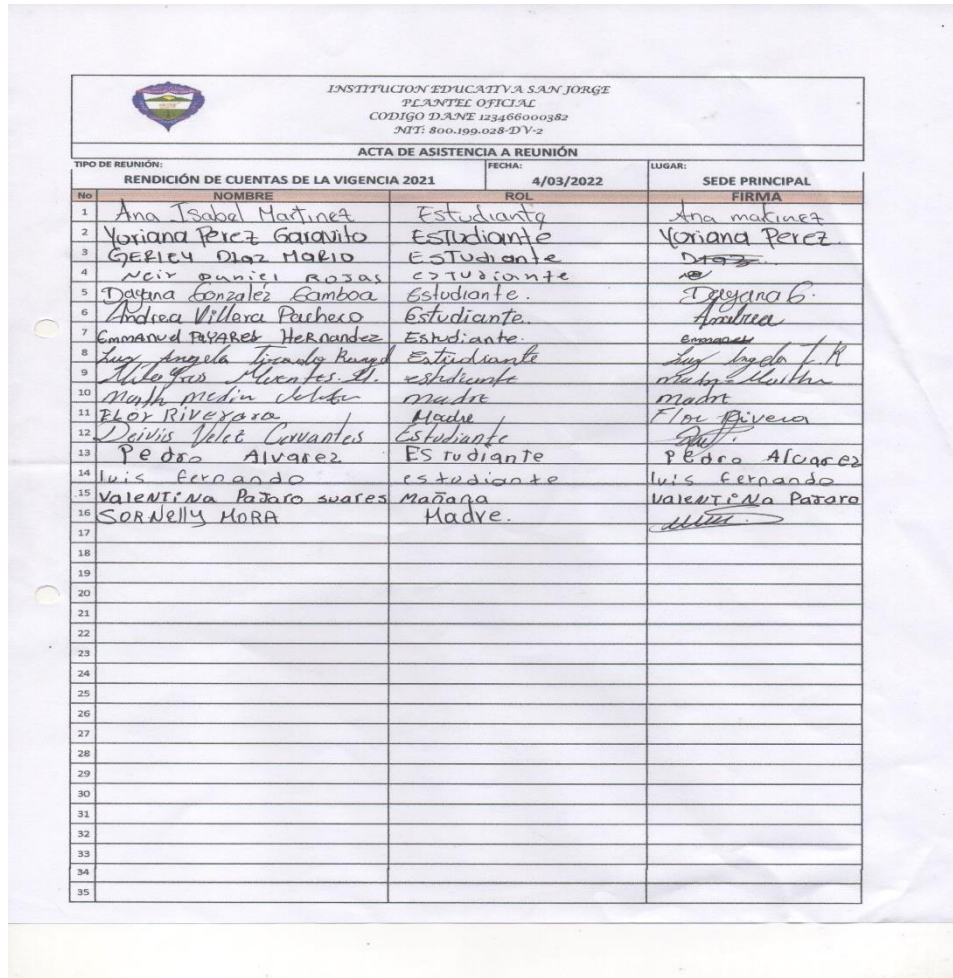 INSTITUCION EDUCATIVA SAN JORGE
PLANTEL OFICIAL
CODIGO DANE 123466000382
NIT: 800.199.028-DV-2
ACTA DE ASISTENCIA A REUNIÓN
TIPO DE REUNIÓN: FECHA: LUGAR:
RENDICIÓN DE CUENTAS DE LA VIGENCIA 2021 4/03/2022 SEDE PRINCIPAL
No NOMBRE ROL FIRMA
1 Ana Isabel Martinez Estudiante Ana martinez
2 Yoriana Perez Garavito Estudiante Yoriana Perez
3 GERLEY Diaz MARIO Estudiante Diaz
4 Neir Daniel Rojas estudiante
5 Dayana Gonzalez Gamboa Estudiante. Dayana G.
6 Andrea Villera Pacheco Estudiante. Andrea
7 Emmanuel PAYARES HeRnandez Estudiante.
8 Luz Angela Tirado Rangel Estudiante Luz Angela T. R
9 estudiante
10 madre madre
11 FLOR Rivera Madre Flor Rivera
12 Deivis Velez Cervantes Estudiante
13 Pedro Alvarez ESTudiante Pedro Alvarez
14 luis fernando estudiante luis fernando
15 ValeNTiNa PaJaro suares Mañana ValeNTiNa PaJaro
16 SORNelly MORA Madre.
17
18
19
20
21
22
23
24
25
26
27
28
29
30
31
32
33
34
35